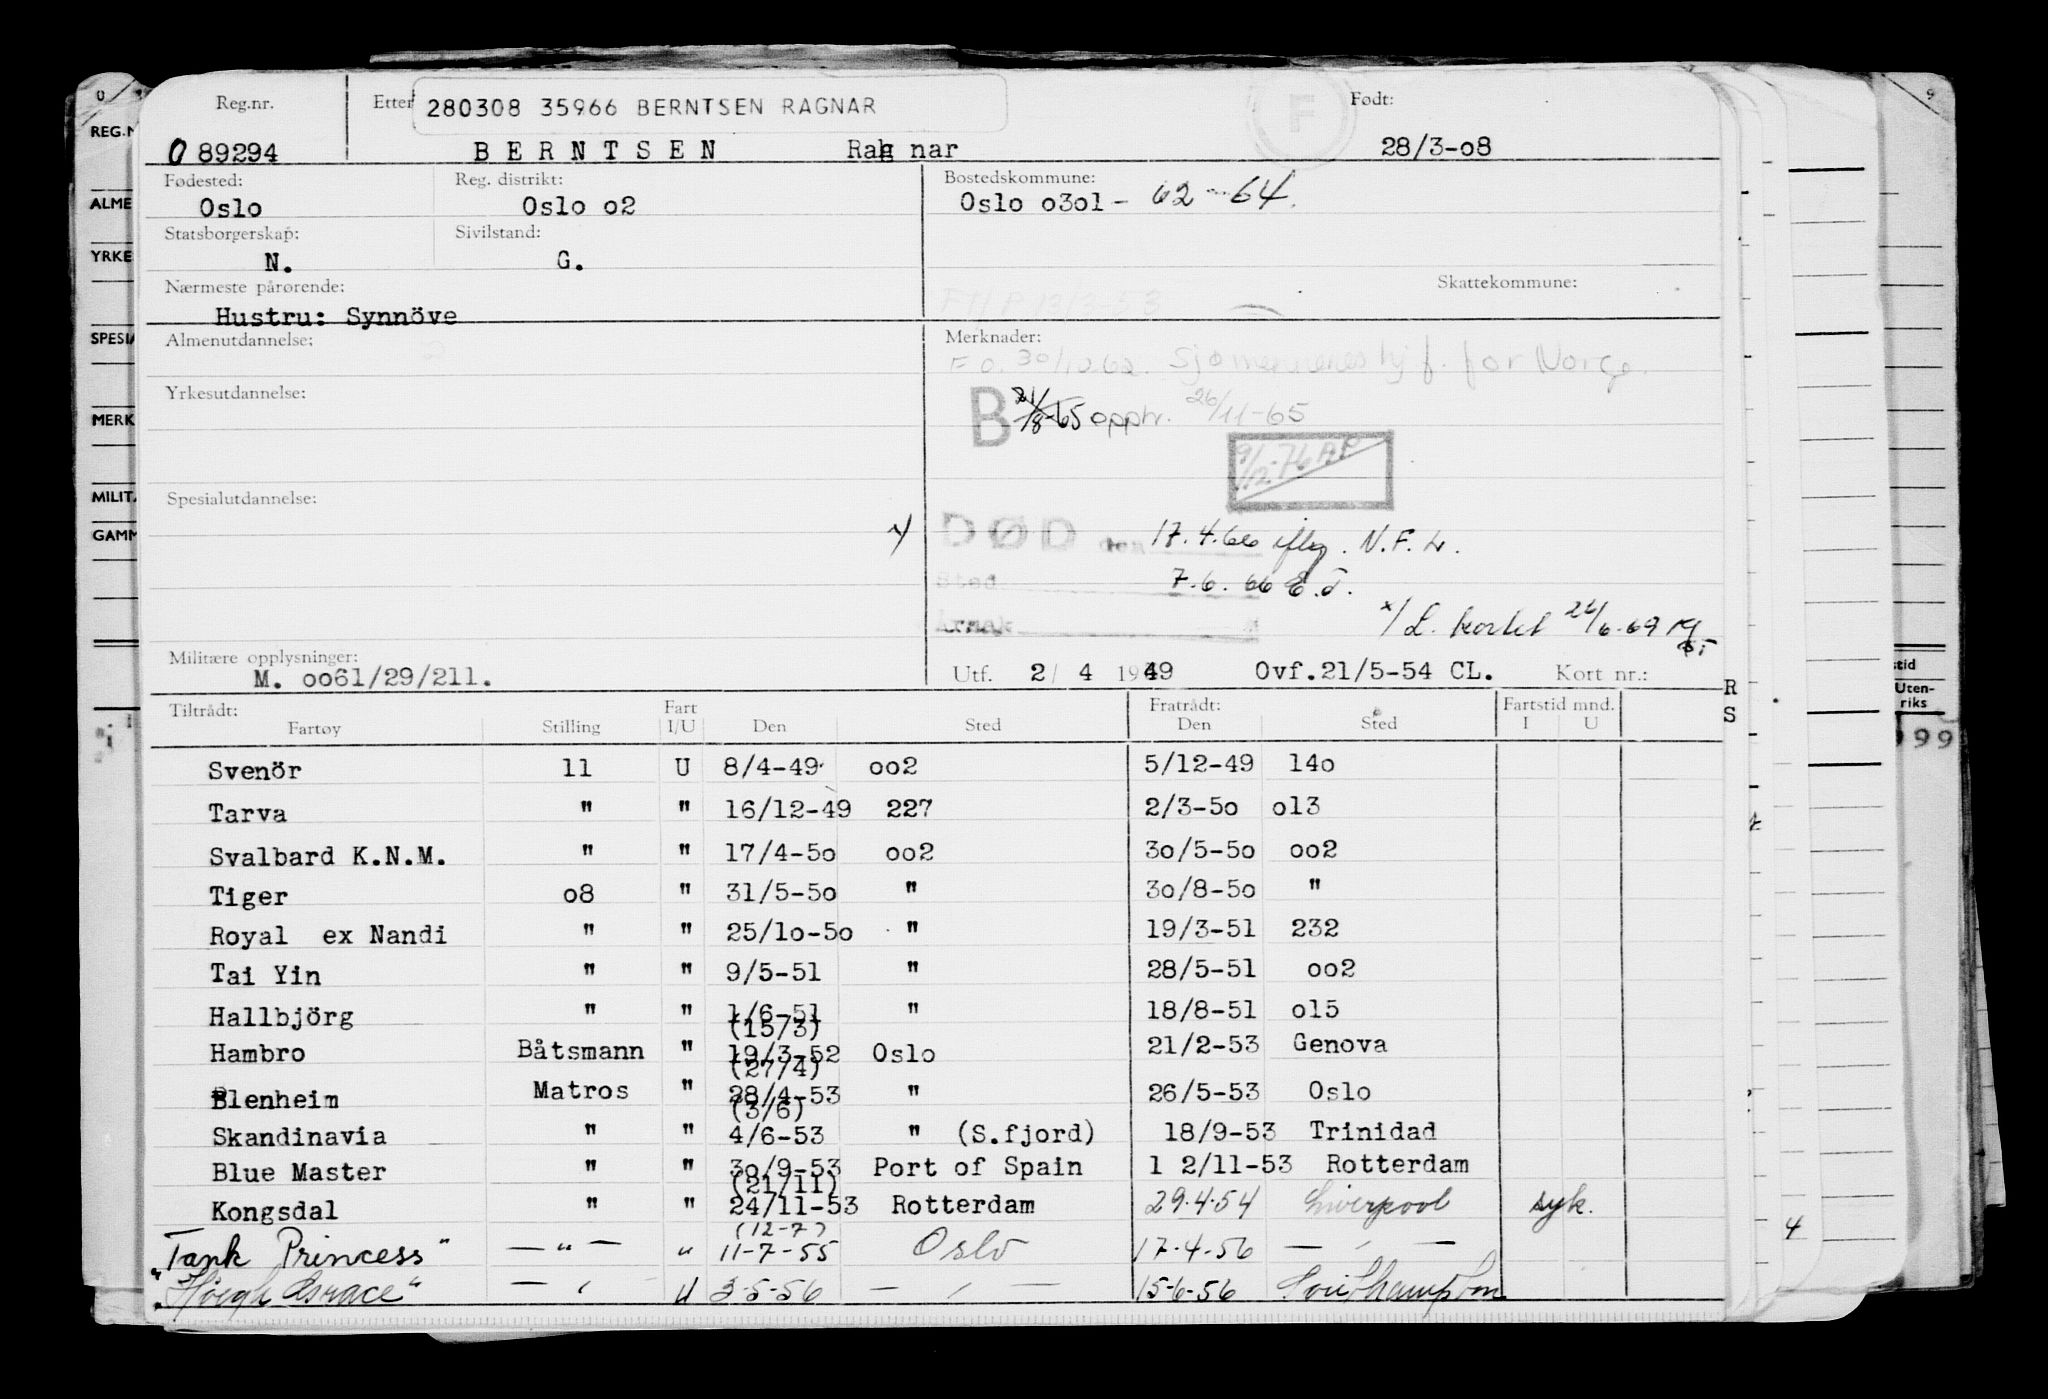 Reg.nr. Etter 280308 35966 BERNTSEN RAGNAR F Født:
089294 BERNTSEN Ragnar 28/3-o8
Fødested: Reg. distrikt: Bostedskommune:
Oslo Oslo o2 Oslo o3o1 - 62-64.
Statsborgerskap: Sivilstand:
N. G.
Nærmeste pårørende: Skattekommune:
Hustru: Synnöve
Almenutdannelse: Merknader:
F.O. 30/10 62. Sjømennenes hj f. for Norge.
Yrkesutdannelse: B 21/8-65 opphr. 26/11-65
9/12-76 AP
Spesialutdannelse:
x) DØD den 17.4.66 iflg. N.F.L.
Sted 7.6.66 E.J.
Årsak x/ L. kortet 26/6-69
Militære opplysninger:
M. oo61/29/211. Utf. 2/ 4 1949 Ovf.21/5-54 CL. Kort nr.:
Tiltrådt: Fart Fratrådt: Fartstid mnd.
Fartøy Stilling I/U Den Sted Den Sted I U
Svenör 11 U 8/4-49 oo2 5/12-49 14o
Tarva " " 16/12-49 227 2/3-5o o13
Svalbard K.N.M. " " 17/4-5o oo2 3o/5-5o oo2
Tiger o8 " 31/5-5o " 3o/8-5o "
Royal ex Nandi " " 25/1o-5o " 19/3-51 232
Tai Yin " " 9/5-51 " 28/5-51 oo2
Hallbjörg " " 1/6-51 " 18/8-51 o15
(15/3)
Hambro Båtsmann " 19/3-52 Oslo 21/2-53 Genova
(27/4)
Blenheim Matros " 28/4-53 " 26/5-53 Oslo
(3/6)
Skandinavia " " 4/6-53 " (S.fjord) 18/9-53 Trinidad
Blue Master " " 3o/9-53 Port of Spain 1 2/11-53 Rotterdam
(21/11)
Kongsdal " " 24/11-53 Rotterdam 29.4.54 Liverpool syk.
(12-7)
"Tank Princess" — " — " 11-7-55 Oslo 17.4.56 — ' —
"Høegh Grace" — ' — U 3-5-56 — ' — 15-6-56 Southampton
REG.N
ALME
YRKE
SPESIA
MERK
MILITA
GAMM
R
S
stid
Uten-
riks
99
4
9